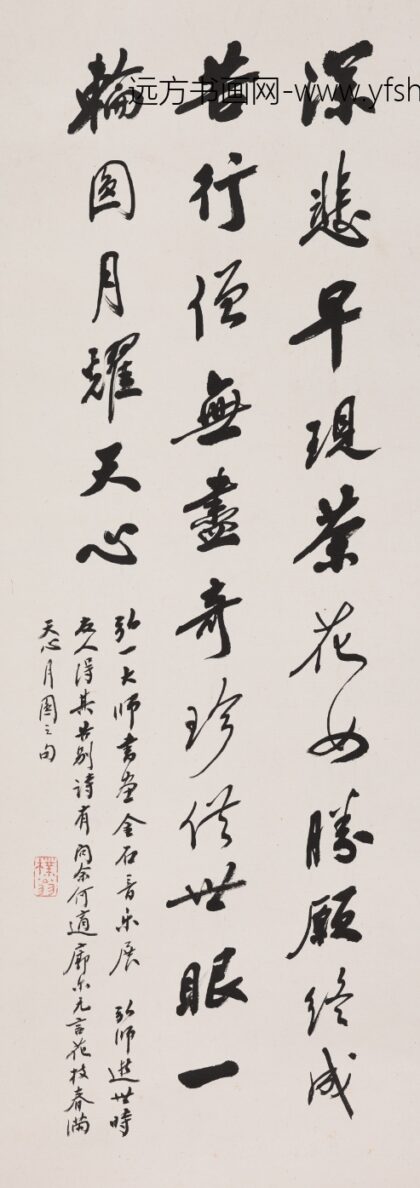 远方书画网-www.yfsh
深悲早現茶花女勝願終成
苦行僧無盡奇珍供世眼一
輪圓月耀天心
弘一大師書畫金石音乐展 弘師逝世時
友人得其告别詩有問余何適廓尔亡言花枝春滿
天心月圓之句
樸翁